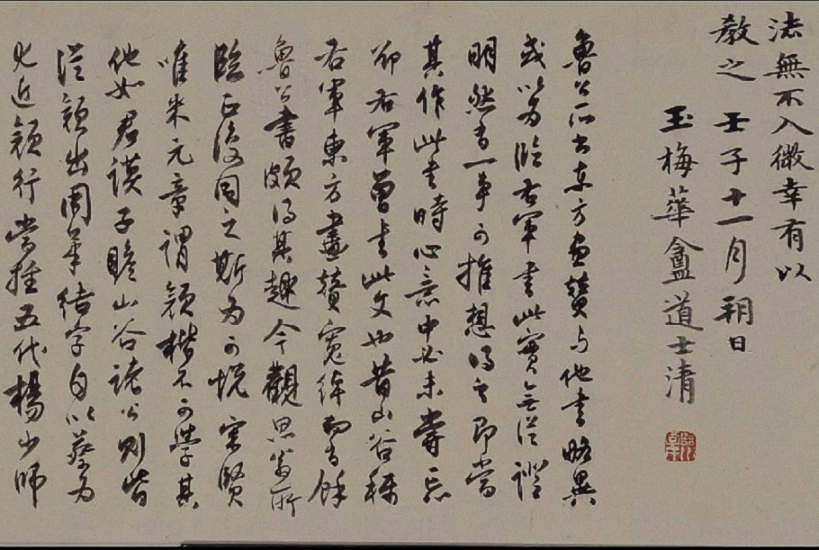 法無不入微幸有以
教之 壬子十一月朔日
玉梅華盦道士清
魯公所書東方畫贊與他書略異
或以為臨右軍書此實無從證
明然有一事可推想得之即當
其作此書時心意中必未嘗忘
卻右軍曾書此文也昔山谷稱
右軍東方畫贊寬綽而有餘
魯公書頗得其趣今觀思翁所
臨正復同之斯為可悅宋賢
唯米元章謂顏楷不可學其
他如君謨子瞻山谷諸公則皆
從顏出用筆結字自以蔡為
尤近顏行當推五代楊少師